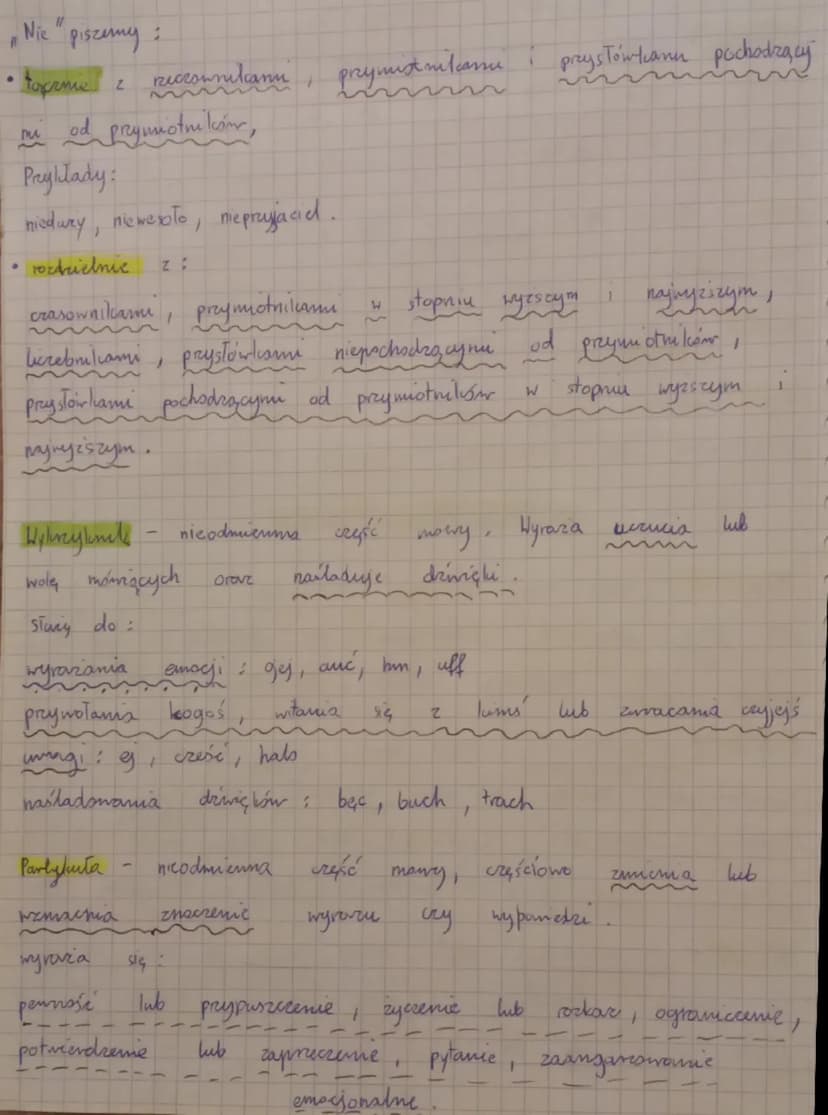 „Nie" piszemy :
• łącznie z rzeczownikami , przymiotnikami i przysłówkami pochodzący
mi od przymiotników,
Przykłady:
nieduży , niewesoło , nieprzyjaciel .
• rozdzielnie z :
czasownikami , przymiotnikami w stopniu wyższym i najwyższym ,
liczebnikami , przysłówkami niepochodzącymi od przymiotników ,
przysłówkami pochodzącymi od przymiotników w stopniu wyższym i
najwyższym .
Wykrzyknik – nieodmienna część mowy . Wyraża uczucia lub
wolę mówiących oraz naśladuje dźwięki .
Służy do :
wyrażania emocji : ojej , auć , hm , uff
przywołania kogoś , witania się z kimś lub zwracania czyjejś
uwagi : ej , cześć , halo
naśladowania dźwięków : bęc , buch , trach
Partykuła – nieodmienna część mowy , częściowo zmienia lub
wzmacnia znaczenie wyrazu czy wypowiedzi .
wyraża się :
pewność lub przypuszczenie , życzenie lub rozkaz , ograniczenie ,
potwierdzenie lub zaprzeczenie , pytanie , zaangażowanie
emocjonalne .